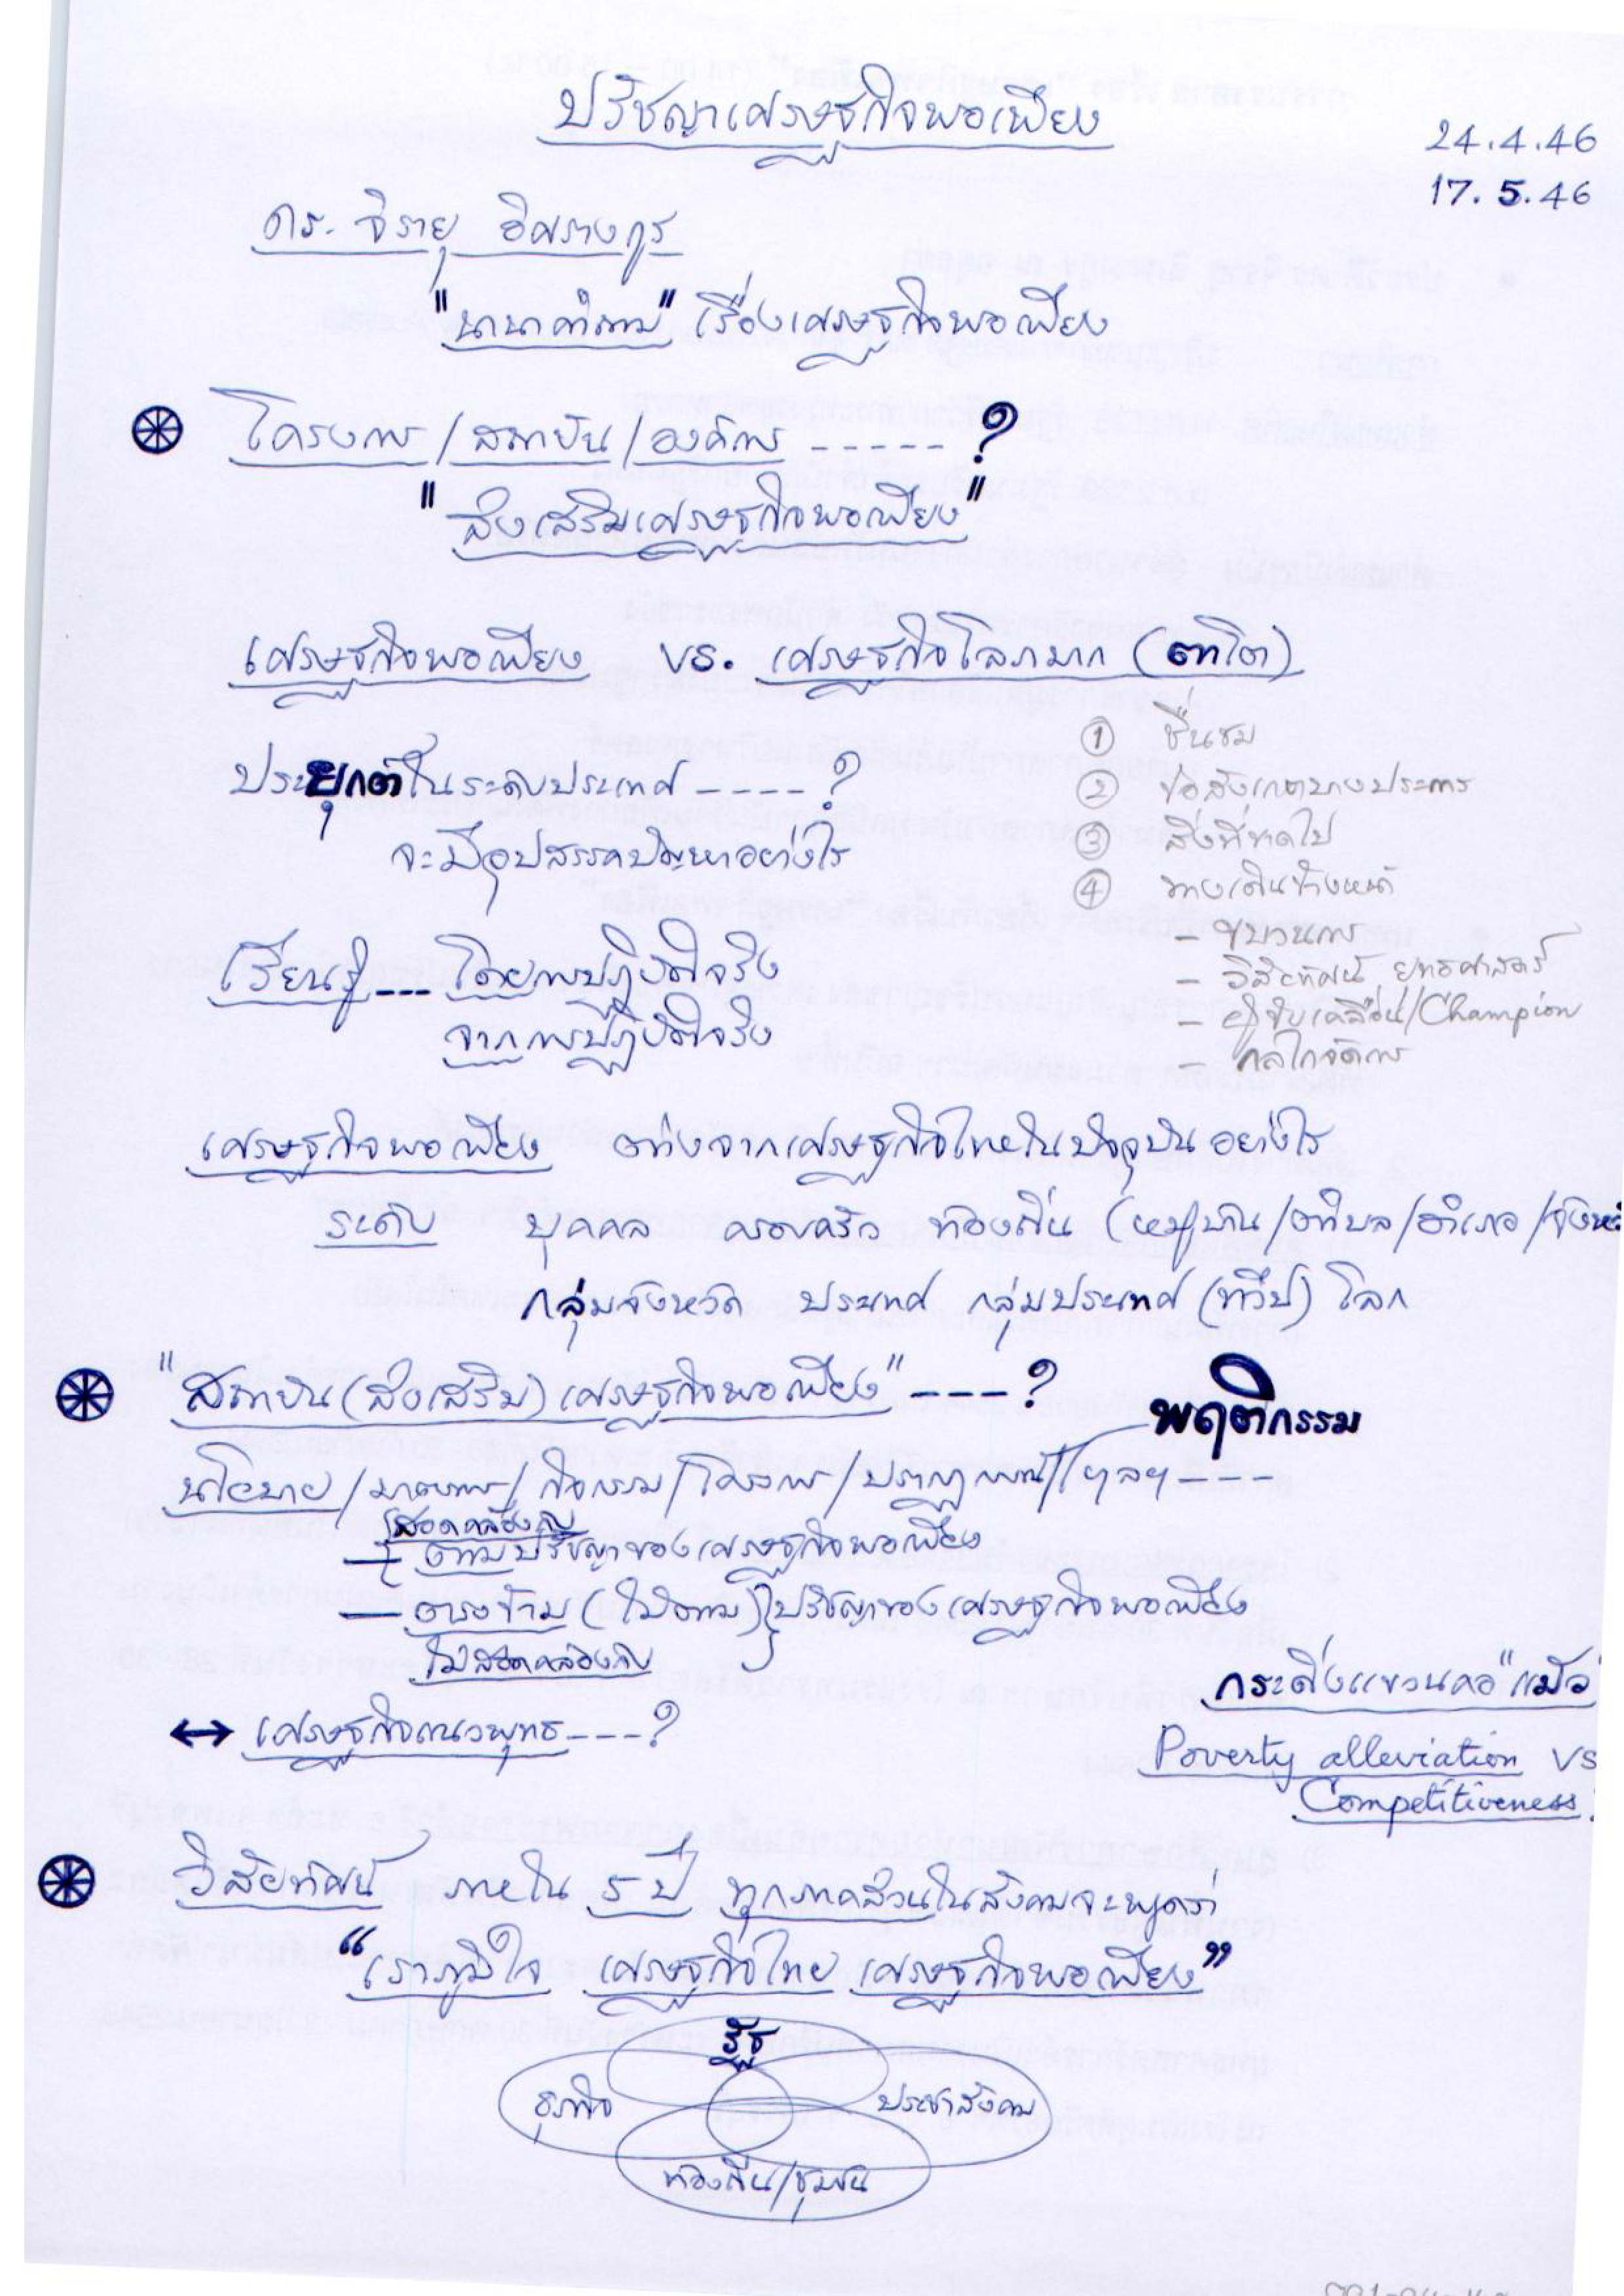 ปรัชญาเศรษฐกิจพอเพียง
24.4.46
17.5.46
ดร. จิรายุ อิศรางกูร
"นานาคำถาม" เรื่องเศรษฐกิจพอเพียง
โครงการ/สถาบัน/องค์กร ----- ?
"ส่งเสริมเศรษฐกิจพอเพียง"
เศรษฐกิจพอเพียง vs. เศรษฐกิจโลภมาก (ตาโต)
① ชื่นชม
ประยุกต์ในระดับประเทศ ---- ?
② ข้อสังเกตบางประการ
จะมีอุปสรรคปัญหาอย่างไร
③ สิ่งที่ขาดไป
④ ทางเดินข้างหน้า
- ขบวนการ
เรียนรู้ --- โดยการปฏิบัติจริง
- วิสัยทัศน์ ยุทธศาสตร์
จากการปฏิบัติจริง
- ผู้ขับเคลื่อน/Champion
- กลไกจัดการ
เศรษฐกิจพอเพียง ต่างจากเศรษฐกิจไทยในปัจจุบันอย่างไร
ระดับ บุคคล ครอบครัว ท้องถิ่น (หมู่บ้าน/ตำบล/อำเภอ/จังห
กลุ่มจังหวัด ประเทศ กลุ่มประเทศ (ทวีป) โลก
"สถาบัน(ส่งเสริม)เศรษฐกิจพอเพียง" ---- ?
พฤติกรรม
นโยบาย/มาตรการ/กิจกรรม/โครงการ/ปรากฏการณ์/ฯลฯ ---
สอดคล้องกับ
- ตามปรัชญาของเศรษฐกิจพอเพียง
- ตรงข้าม (ไม่ตาม) ปรัชญาของเศรษฐกิจพอเพียง
ไม่สอดคล้องกับ
กระดิ่งแขวนคอ "แมว"
↔ เศรษฐกิจแนวพุทธ --- ?
Poverty alleviation vs
Competitiveness
วิสัยทัศน์ ภายใน 5 ปี ทุกภาคส่วนในสังคมจะพูดว่า
"เราภูมิใจ เศรษฐกิจไทย เศรษฐกิจพอเพียง"
รัฐ
ธุรกิจ ประชาสังคม
ท้องถิ่น/ชุมชน